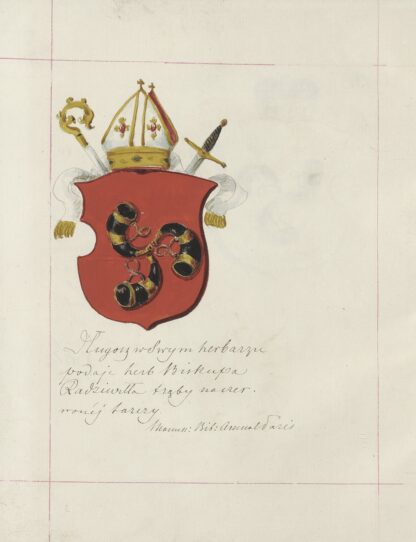 Długosz w swym herbarzu
podaje herb Biskupa
Radziwiłła trąby na czer-
wonéj tarczy.
Manus: Bib: Arsenal Paris